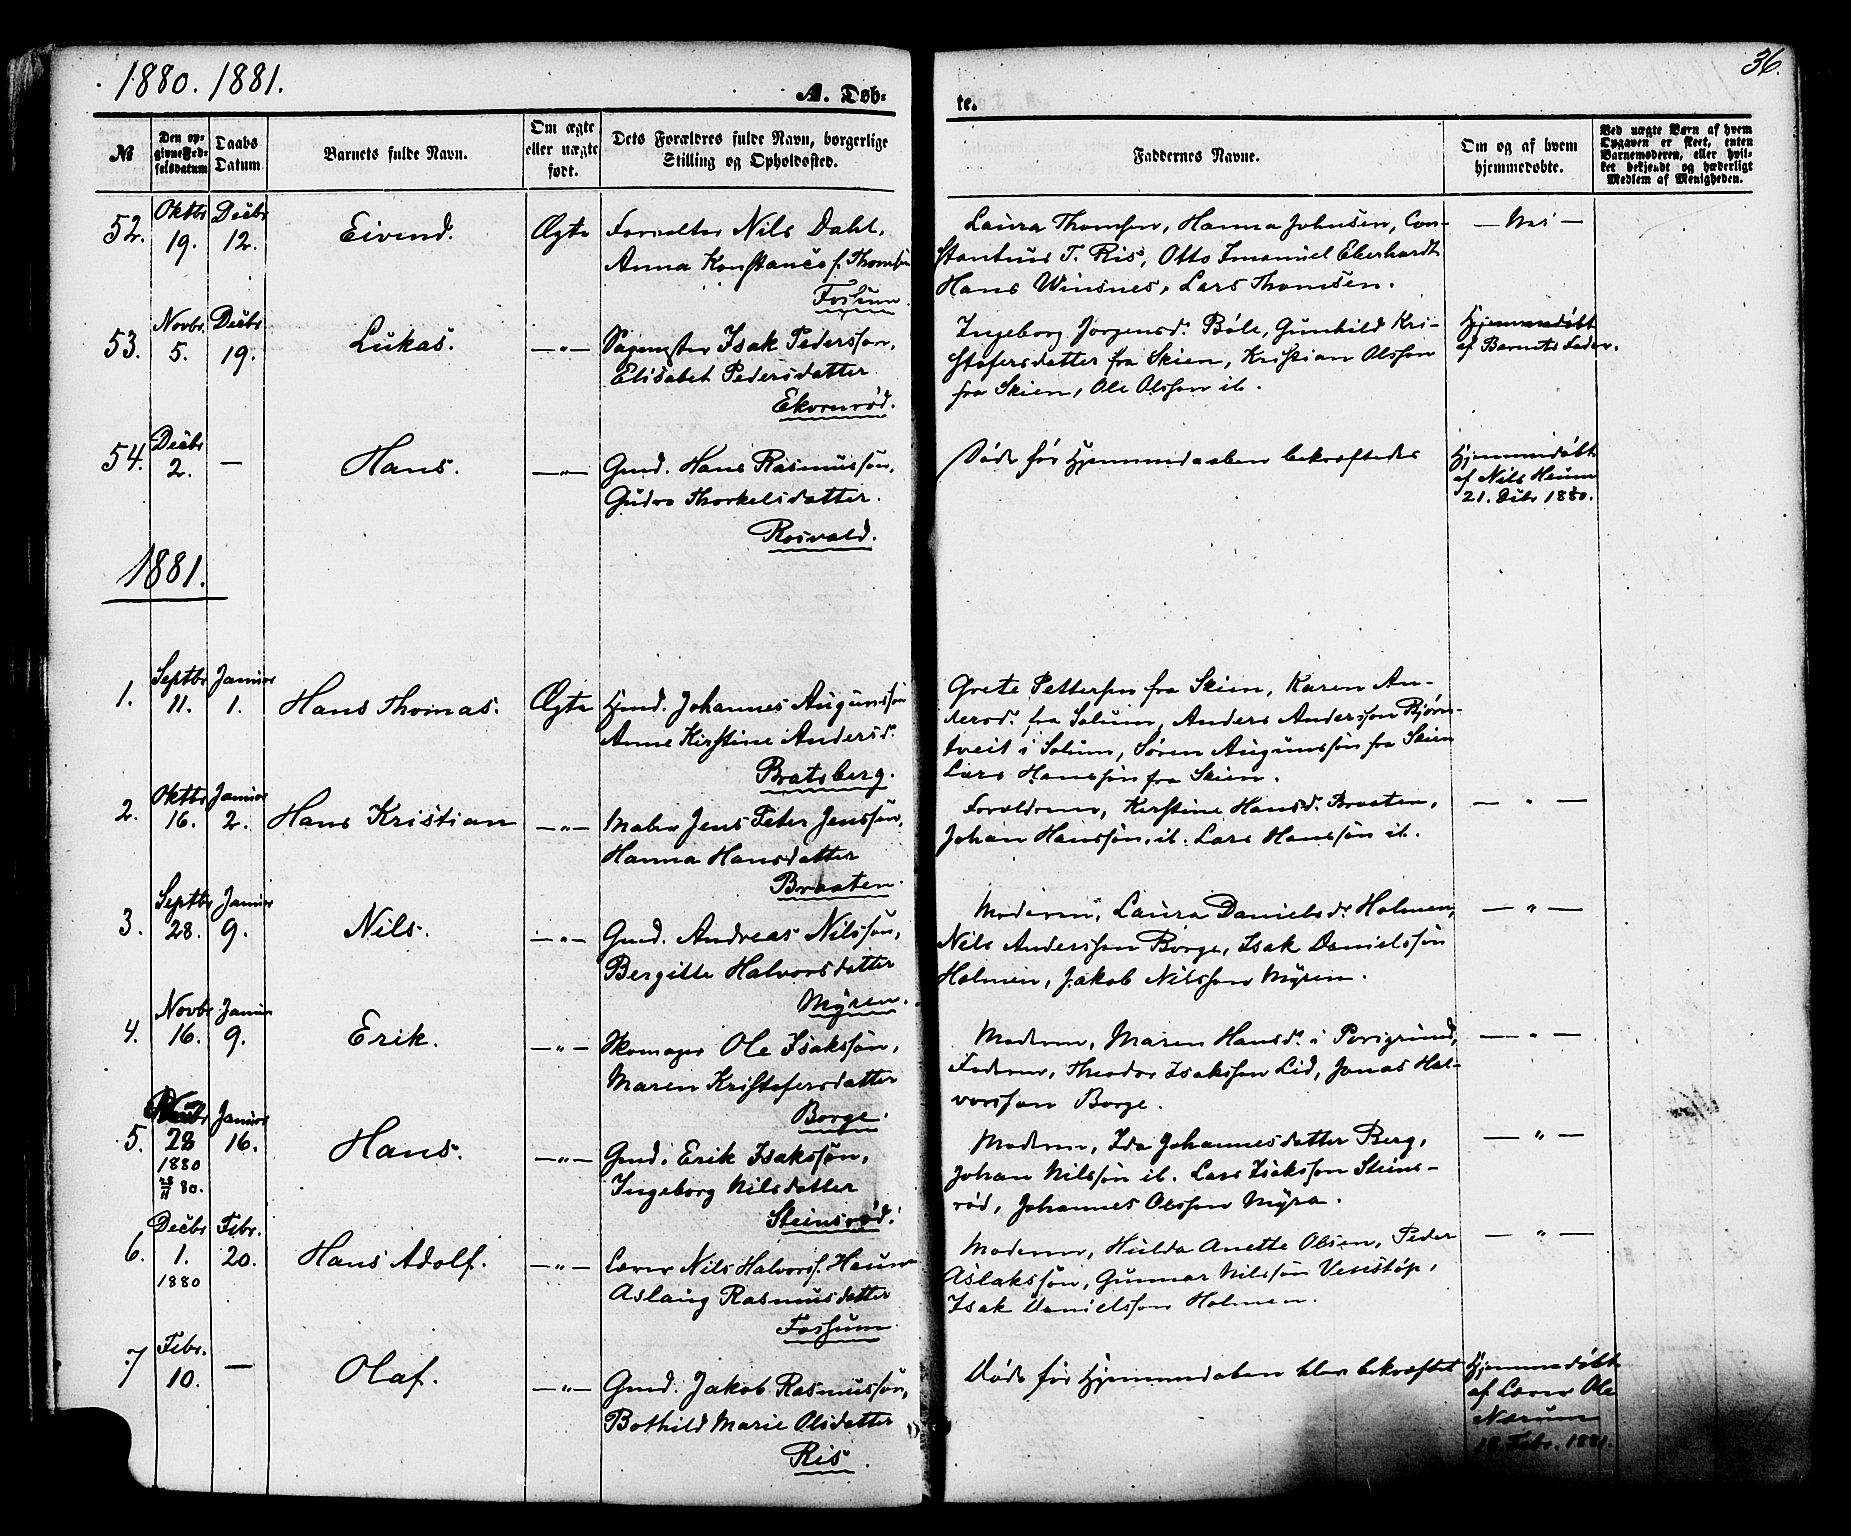 1880. 1881.
A. Døb-
te.
36.
№
Den op-
givne Fød-
selsdatum
Daabs
Datum.
Barnets fulde Navn.
Om ægte
eller uægte
født.
Dets Forældres fulde Navn, borgerlige
Stilling og Opholdssted.
Faddernes Navne.
Om og af hvem
hjemmedøbte.
Ved uægte Børn af hvem
Opgaven er skeet, enten
Barnemoderen, eller hvil-
ket bekjendt og hæderligt
Medlem af Menigheden.
52. Oktbr 19. Decbr 12. Eivind. Ægte Forvalter Nils Dahl,
Anna Konstance f. Thomsen
Fossum.
Laura Thomsen, Hanna Johnsen, Con-
stantius T. Ris, Otto Imanuel Eberhardt
Hans Winsnes, Lars Thomsen.
— Nei —
53. Novbr. 5. Decbr 19. Lukas. —"— Sagmester Isak Pedersson,
Elisabet Pedersdatter
Ekornrød.
Ingeborg Jorgensd. Bøle, Gunhild Kri-
stofersdatter fra Skien, Kristian Olsson
fra Skien, Ole Olsson ib.
Hjemmedøbt
af Barnets Fader.
54. Decbr 2. — Hans. —"— Gmd. Hans Rasmussøn,
Gudro Thorkelsdatter.
Rosvald.
Døde før Hjemmedaaben bekræftedes
Hjemmedøbt
af Nils Heum
21. Decbr 1880.
1881.
1. Septbr 11. Januar 1. Hans Thomas. Ægte Hmd. Johannes Augunssøn
Anne Kirstine Andersd.
Bratsberg.
Grete Pettersen fra Skien, Karen An-
dersd. fra Solum, Anders Andersson Bjørn-
tveit i Solum, Søren Augunssøn fra Skien
Lars Hanssøn fra Skien.
2. Oktbr 16. Januar 2. Hans Kristian —"— Maler Jens Peter Jenssøn,
Hanna Hansdatter
Braaten.
Forældrene, Kirstine Hansd. Braaten,
Johan Hanssøn, ib. Lars Hanssøn ib.
— " —
3. Septbr 28. Januar 9. Nils. —"— Gmd. Andreas Nilssøn,
Bergitte Halvorsdatter
Myren.
Moderen, Laura Danielsd. Holmen,
Nils Andersson Borge, Isak Danielssøn
Holmen, Jakob Nilsson Myren.
— " —
4. Novbr 16. Januar 9. Erik. —"— Skomager Ole Isakssøn,
Maren Kristofersdatter
Borge.
Moderen, Maren Hansd. i Porsgrund,
Faderen, Theodor Isaksson Lid, Jonas Hal-
vorsson Borge.
— " —
5. 28 1880 28/11 80. Januar 16. Hans. —"— Gmd. Erik Isakssøn,
Ingeborg Nilsdatter
Steinsrød.
Moderen, Ida Johannesdatter Berg,
Johan Nilssøn ib. Lars Isaksson Steins-
rød, Johannes Olsson Myra.
— " —
6. Decbr 1. 1880 Febr. 20. Hans Adolf. —"— Lærer Nils Halvors. Heum
Aslaug Rasmusdatter
Fossum
Moderen, Hulda Anette Olsen, Peder
Aslakssøn, Gunnar Nilssøn Venstøp,
Isak Danielsson Holmen.
— " —
7 Febr. 10. — Olaf. —"— Gmd. Jakob Rasmussøn,
Bothild Marie Olsdatter
Ris.
Døde før Hjemmedaaben blev bekræftet
Hjemmedøbt
af Lærer Ole
Nærum
18 Febr. 1881.